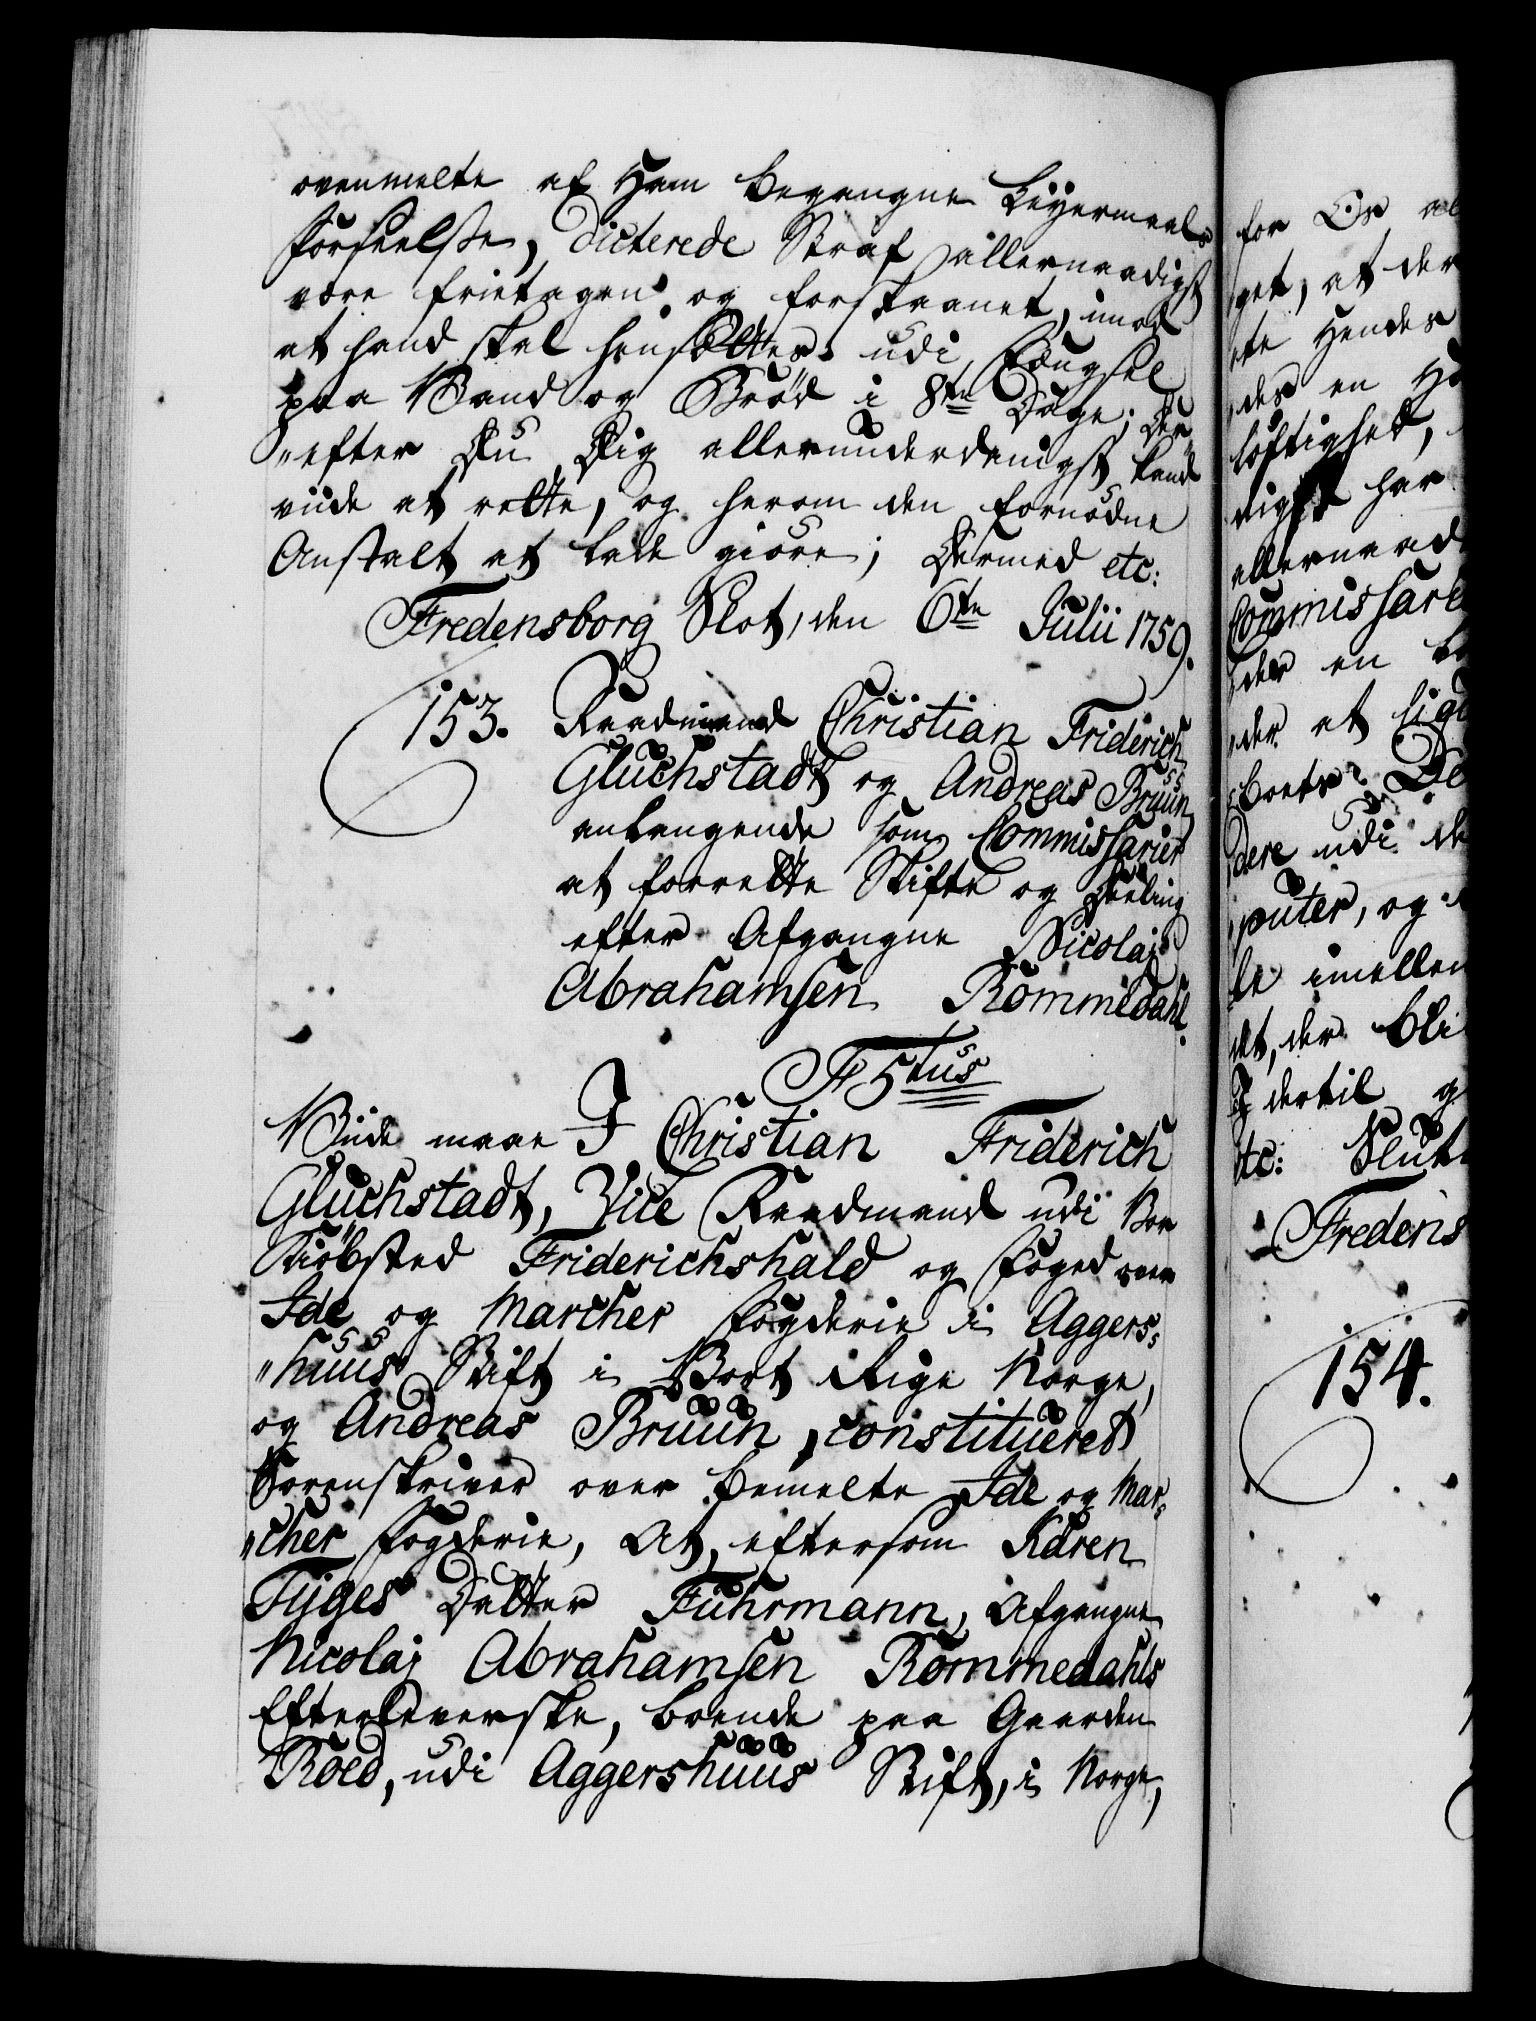 ovenmelte af Ham begangne Leyermaals
Forseelse, dicterede Straf allernaadigst
være frietagen og forskaanet, imod
at hand skal hensættes udi Fængsel
paa Vand og Brød i 8te Dage; Der
"efter Du Dig allerunderdanigst kand
viide at rette, og herom den fornødne
Anstalt at lade giøre; Dermed etc:
Fredensborg Slot, den 6te Julii 1759.
153. Raadmand Christian Friderich
Gluchstadt og Andreas Bruun
anlangende som Commissarier
at forrette Skifte og Deeling
efter Afgangne Nicolaj
Abrahamsen Rommedahl.
F 5tus
Viide maae I Christian Friderich
Gluchstadt, Vice Raadmand udi Vor
Kiøbsted Friderichshald og Foged over
Ide og Marcher Fogderie i Aggers-
"huus Stift i Vort Rige Norge,
og Andreas Bruun, constitueret
Sorenskriver over bemelte Ide og Mar-
"cher Fogderie, At, eftersom Karen
Tÿges Datter Fuhrmann, Afgangne
Nicolaj Abrahamsen Rommedahls
Efterleverske, boende paa Gaarden
Röed, udi Aggershuus Stift, i Norge,
for Os al
get, at der
te Hendes
des en
løftighed,
digst har
allernaad
Commissari
der en
der at
Dere udi de
puter, og
le imellem
det, der bli
I dertil g
etc: Slut
Fredens
154.